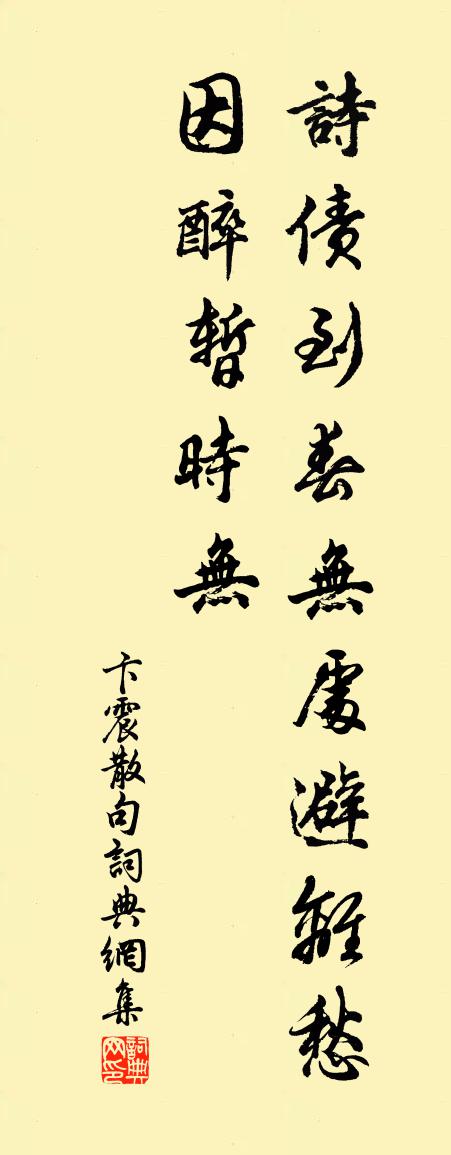 詩債到春無處避離愁
因醉暫時無
卞震散句詞典網集
詞典网印